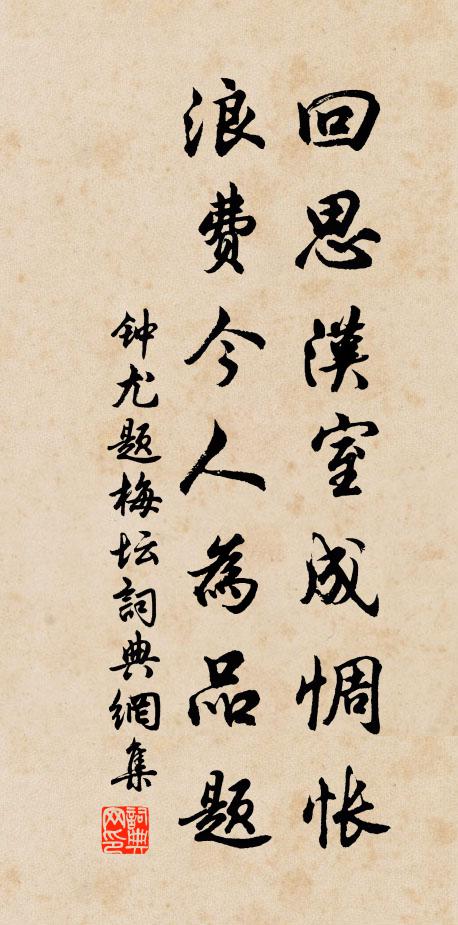 回思漢室成惆悵
浪費今人為品題
钟尤题梅坛詞典網集
詞典網印